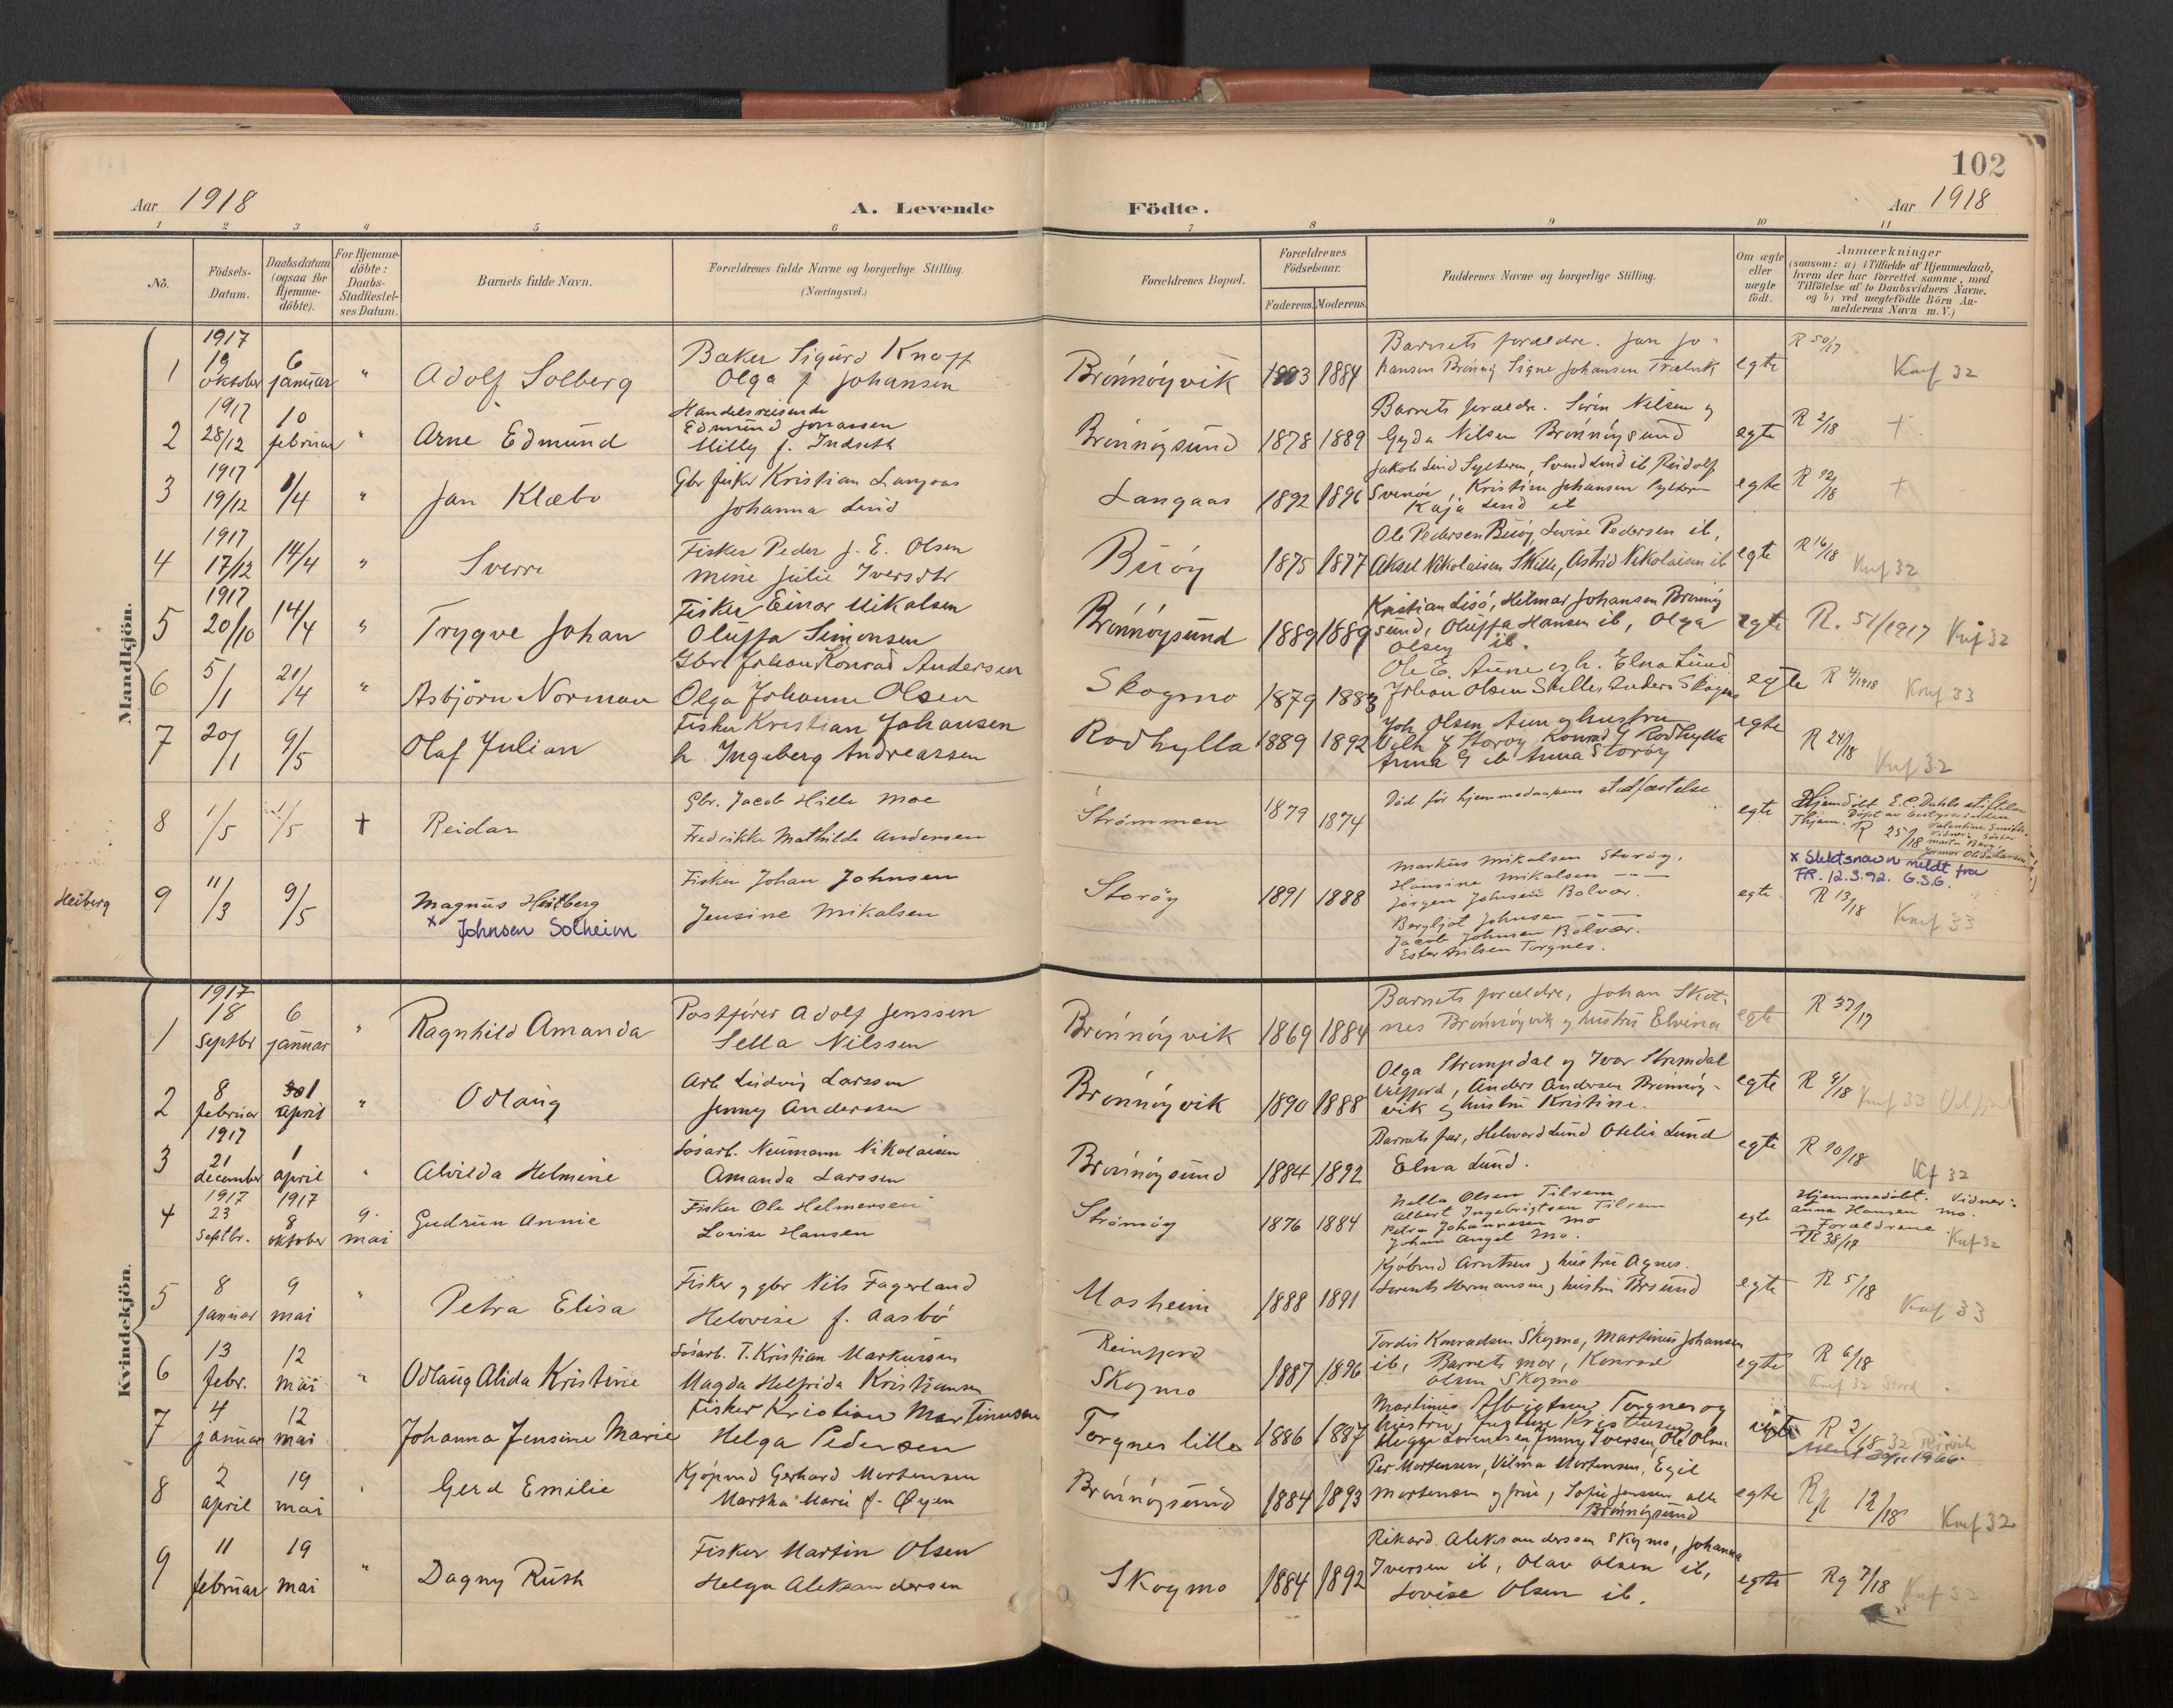 102
Aar 1918
A. Levende Födte.
Aar 1918
1 2 3 4 5 6 7 8 9 10 11
No.
Födsels-Datum.
Daabsdatum (ogsaa for Hjemme-döbte).
For Hjemme-döbte: Daabs-Stadfæstel-ses Datum.
Barnets fulde Navn.
Forældrenes fulde Navne og borgerlige Stilling.
(Næringsvei.)
Forældrenes Bopæl.
Forældrenes Födselsaar.
Faderens. Moderens.
Faddernes Navne og borgerlige Stilling.
Om ægte eller uægte födt.
Anmærkninger
(saasom: a) i Tilfælde af Hjemmedaab, hvem der har forrettet samme, med Tilföielse af to Daabsvidners Navne. og b) ved uægtefödte Börn An-melderens Navn m. V.)
Mandkjön.
1917
1 19 oktober 6 januar " Adolf Solberg
Baker Sigurd Knoff
Olga f Johansen
Brönnöyvik 1884
Barnets forældre. Jan Jo-
hansen Brönnöy Signe Johansen Trælvik
egte R 50/17 Knf 32
1917
2 28/12 10 februar " Arne Edmund
Handelsreisende
Edmund Jonassen
Milly f. Indseth
Brönnöysund 1878 1889
Barnets forældre. Sörin Nilsen og
Gyda Nilsen Brönnöysund
egte R 2/18 +
1917
3 19/12 1/4 " Jan Klæbo
Gbr fisker Kristian Langaas
Johanna Lund
Langaas 1892 1896
Svenör, Kristine Johansen
Kaja Lund ib
egte R 12/18 +
1917
4 17/12 14/4 " Sverre
Fisker Peder J. E. Olsen
Mine Julie Iversdtr
Buöy 1875 1877
Ole Pedersen Buöy, Lovise Pedersen ib,
Aksel Nikolaisen Skille, Astrid Nikolaisen ib
egte R 16/18 Knf 32
1917
5 20/10 14/4 " Trygve Johan
Fisker Einar Mikalsen
Oluffa Simonsen
Brönnöysund 1889 1889
Kristian Lisö, Hilmar Johansen Brönnöy
sund, Oluffa Hansen ib, Olga
Olsen ib.
egte R. 51/1917 Knf 32
6 5/1 21/4 " Asbjörn Norman
Gbr. Johan Konrad Andersen
Olga Johanne Olsen
Skogmo 1879 1883
Ole E. Aune og h. Elna Lund
Johan Olsen Skille, Anders Skogmo
egte R 4/1918 Knf 33
7 20/1 9/5 Olaf Julian
Fisker Kristian Johansen
h Ingeberg Andreassen
Rodhylla 1889 1892
Joh Olsen Aun og hustru
Vilh J Storöy Konrad G Rodhylla
Anna G ib Anna Storöy
egte R 24/18 Knf 32
8 1/5 1/5 † Reidar
Gbr. Jacob Hille Moe
Fredrikke Mathilde Andersen
Strömmen 1879 1874
Död för hjemmedaapens stadfæstelse
egte
Hjemdöbt E.C. Dahls stiftelse
R 25/18
× Slektsnavn meldt fra
FR. 12.3.92. G.S.G.
Heiberg
9 11/3 9/5 Magnus Heitberg
× Johnsen Solheim
Fisker Johan Johnsen
Jensine Mikalsen
Storöy 1891 1888
Markus Mikalsen Storöy.
Hansine Mikalsen -- --
Jörgen Johnsen Bolvær.
Bergljot Johnsen -- --
Jacob Johnsen Bolvær.
Ester Nilsen Torgnes.
egte. R 13/18 Knf 33
Kvindekjön.
1917
1 18 septbr 6 januar " Ragnhild Amanda
Postförer Adolf Jenssen
Sella Nilssen
Brönnöyvik 1869 1884
Barnets forældre, Johan Skot-
nes Brönnöyvik og hustru Elvina
egte R 37/17
2 8 februar 1 april " Odlaug
Arb Ludvig Larssen
Jenny Anderssen
Brönnöyvik 1890 1888
Olga Strompdal og Ivar Strömdal
Velfjord, Anders Andersen Brönnöy-
vik og hustru Kristine.
egte R 9/18 Knf 33
1917
3 21 december 1 april " Alvilda Helmine
Lösarb. Neumann Nikolaisen
Amanda Larssen
Brönnöysund 1884 1892
Barnets far, Helvard Lund Otelie Lund
Elna Lund.
egte R 10/18 Kf 32
1917 1917
4 23 septbr. 8 oktober 9. mai Gudrun Annie
Fisker Ole Helmersen
Lovise Hansen
Strömöy 1876 1884
Nella Olsen Tilrem
Albert Ingebrigtsen Tilrem
Petra Johannesen Mo
Johan Angel Mo.
egte
Hjemmedöbt. Vidner:
Anna Hansen Mo.
og Forældrene.
R 38/17 Knf 32
5 8 januar 9 mai " Petra Elisa
Fisker og gbr Nils Fagerland
Helovise f. Aasbö
Mosheim 1888 1891
Kjöbmd Arntsen og hustru Agnes.
Lorents Hermansen og hustru Brsund
egte R 5/18 Knf 33
6 13 febr. 12 mai " Odlaug Alida Kristine
Lösarb. T. Kristian Markussen
Magda Helfrida Kristiansen
Reinfjord
Skogmo 1887 1896
Tordis Konradsen Skogmo, Martinus Johansen
ib, Barnets mor, Konrad
Olsen Skogmo
egte R 6/18
Knf 32
7 4 januar 12 mai Johanna Jensine Marie
Fisker Kristian Martinusen
Helga Pedersen
Torgnes lille 1886 1887
Jenny Iversen, Ole Olsen
R 2/18 32
8 2 april 19 mai Gerd Emilie
Kjöpmd Gerhard Mortensen
Martha Marie f. Øyen
Brönnöysund 1884 1893
Per Mortensen, Vilma Mortensen, Egil
Mortensen og frue, Sofie Jenssen alle
Brönnöysund
egte 12/18 Knf 32
9 11 februar 19 mai " Dagny Ruth
Fisker Martin Olsen
Helga Aleksandersen
Skogmo 1884 1892
Rikard Aleksandersen Skogmo, Johanna
Iversen ib, Olav Olsen ib,
Lovise Olsen ib.
egte Rg 7/18 Knf 33